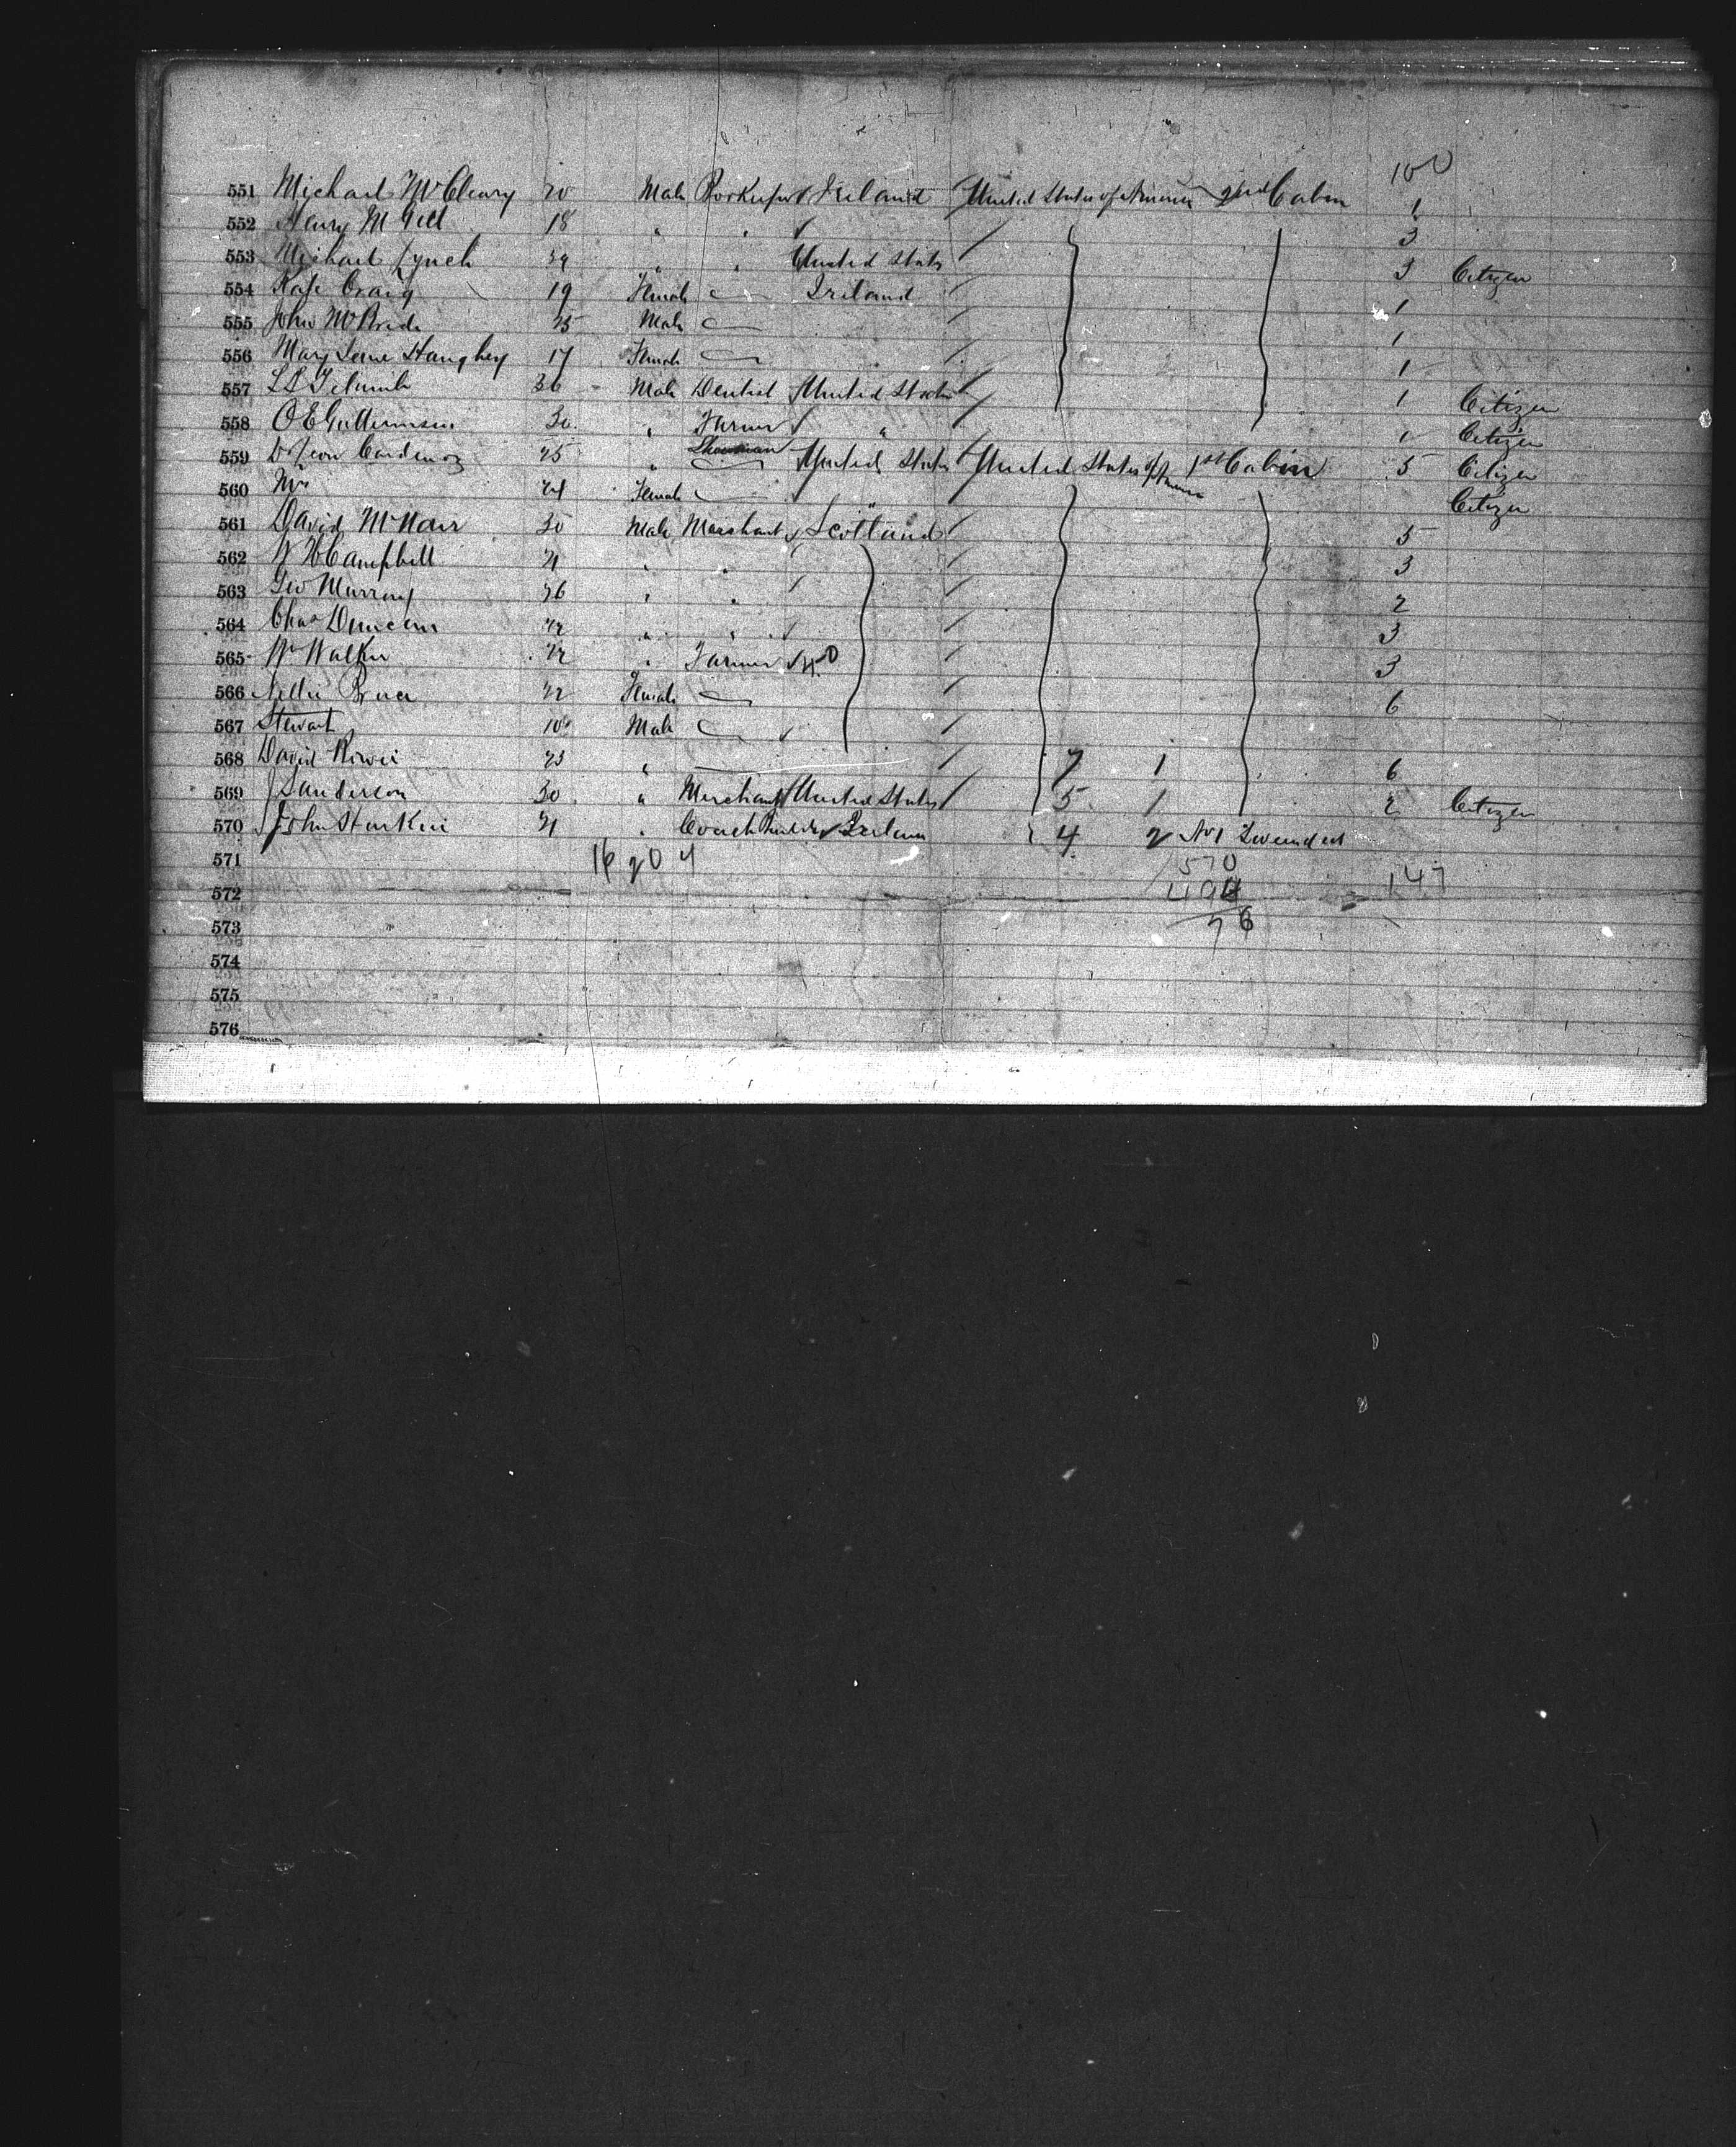 100
551 Michael McCleary 20 Male Bookkeeper Ireland United States of America 2nd Cabin 1
552 Henry McGill 18 " " 3
553 Michael Lynch 39 " " United States 3 Citizen
554 Rose Craig 19 Female Ireland 1
555 John McBride 25 Male 1
556 Mary Jane Haughey 17 Female 1
557 36 Male Dentist United States 1 Citizen
558 O E 30 " Farmer " 1 Citizen
559 25 " Showman United States United States of America 1st Cabin 5 Citizen
560 Mrs 24 Female " Citizen
561 David McNair 30 Male Merchant Scotland 5
562 W H Campbell 21 " " 3
563 Geo Murray 26 " " 2
564 Chas Duncan 22 " " 3
565 Wm Walker 22 " Farmer 3
566 Nellie Bruce 22 Female 6
567 Stewart 10 Male
568 David 23 " 7 1 6
569 J Sanderson 30 " Merchant United States 5 1 2 Citizen
570 John 21 " Coach Builder Ireland 4 2 No 1
571 16 20 4 570
572 494 147
573 76
574
575
576